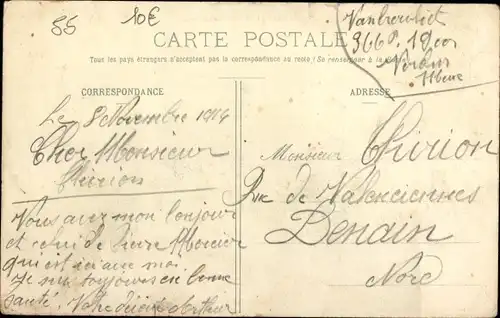 55 10€
Vanbeuliet
366e. 19 Cor
Verdun
Meuse
CARTE POSTALE
Tous les pays étrangers n'acceptent pas la correspondance au recto (Se renseigner à la
CORRESPONDANCE
ADRESSE
Le 8 Novembre 1914
Cher Monsieur
Thirion
Vous avez mon bonjour
et celui de Pierre Mercier
qui est ici avec moi
Je suis toujours en bonne
santé. Votre Arthur
Monsieur Thirion
Rue de Valenciennes
Denain
Nord